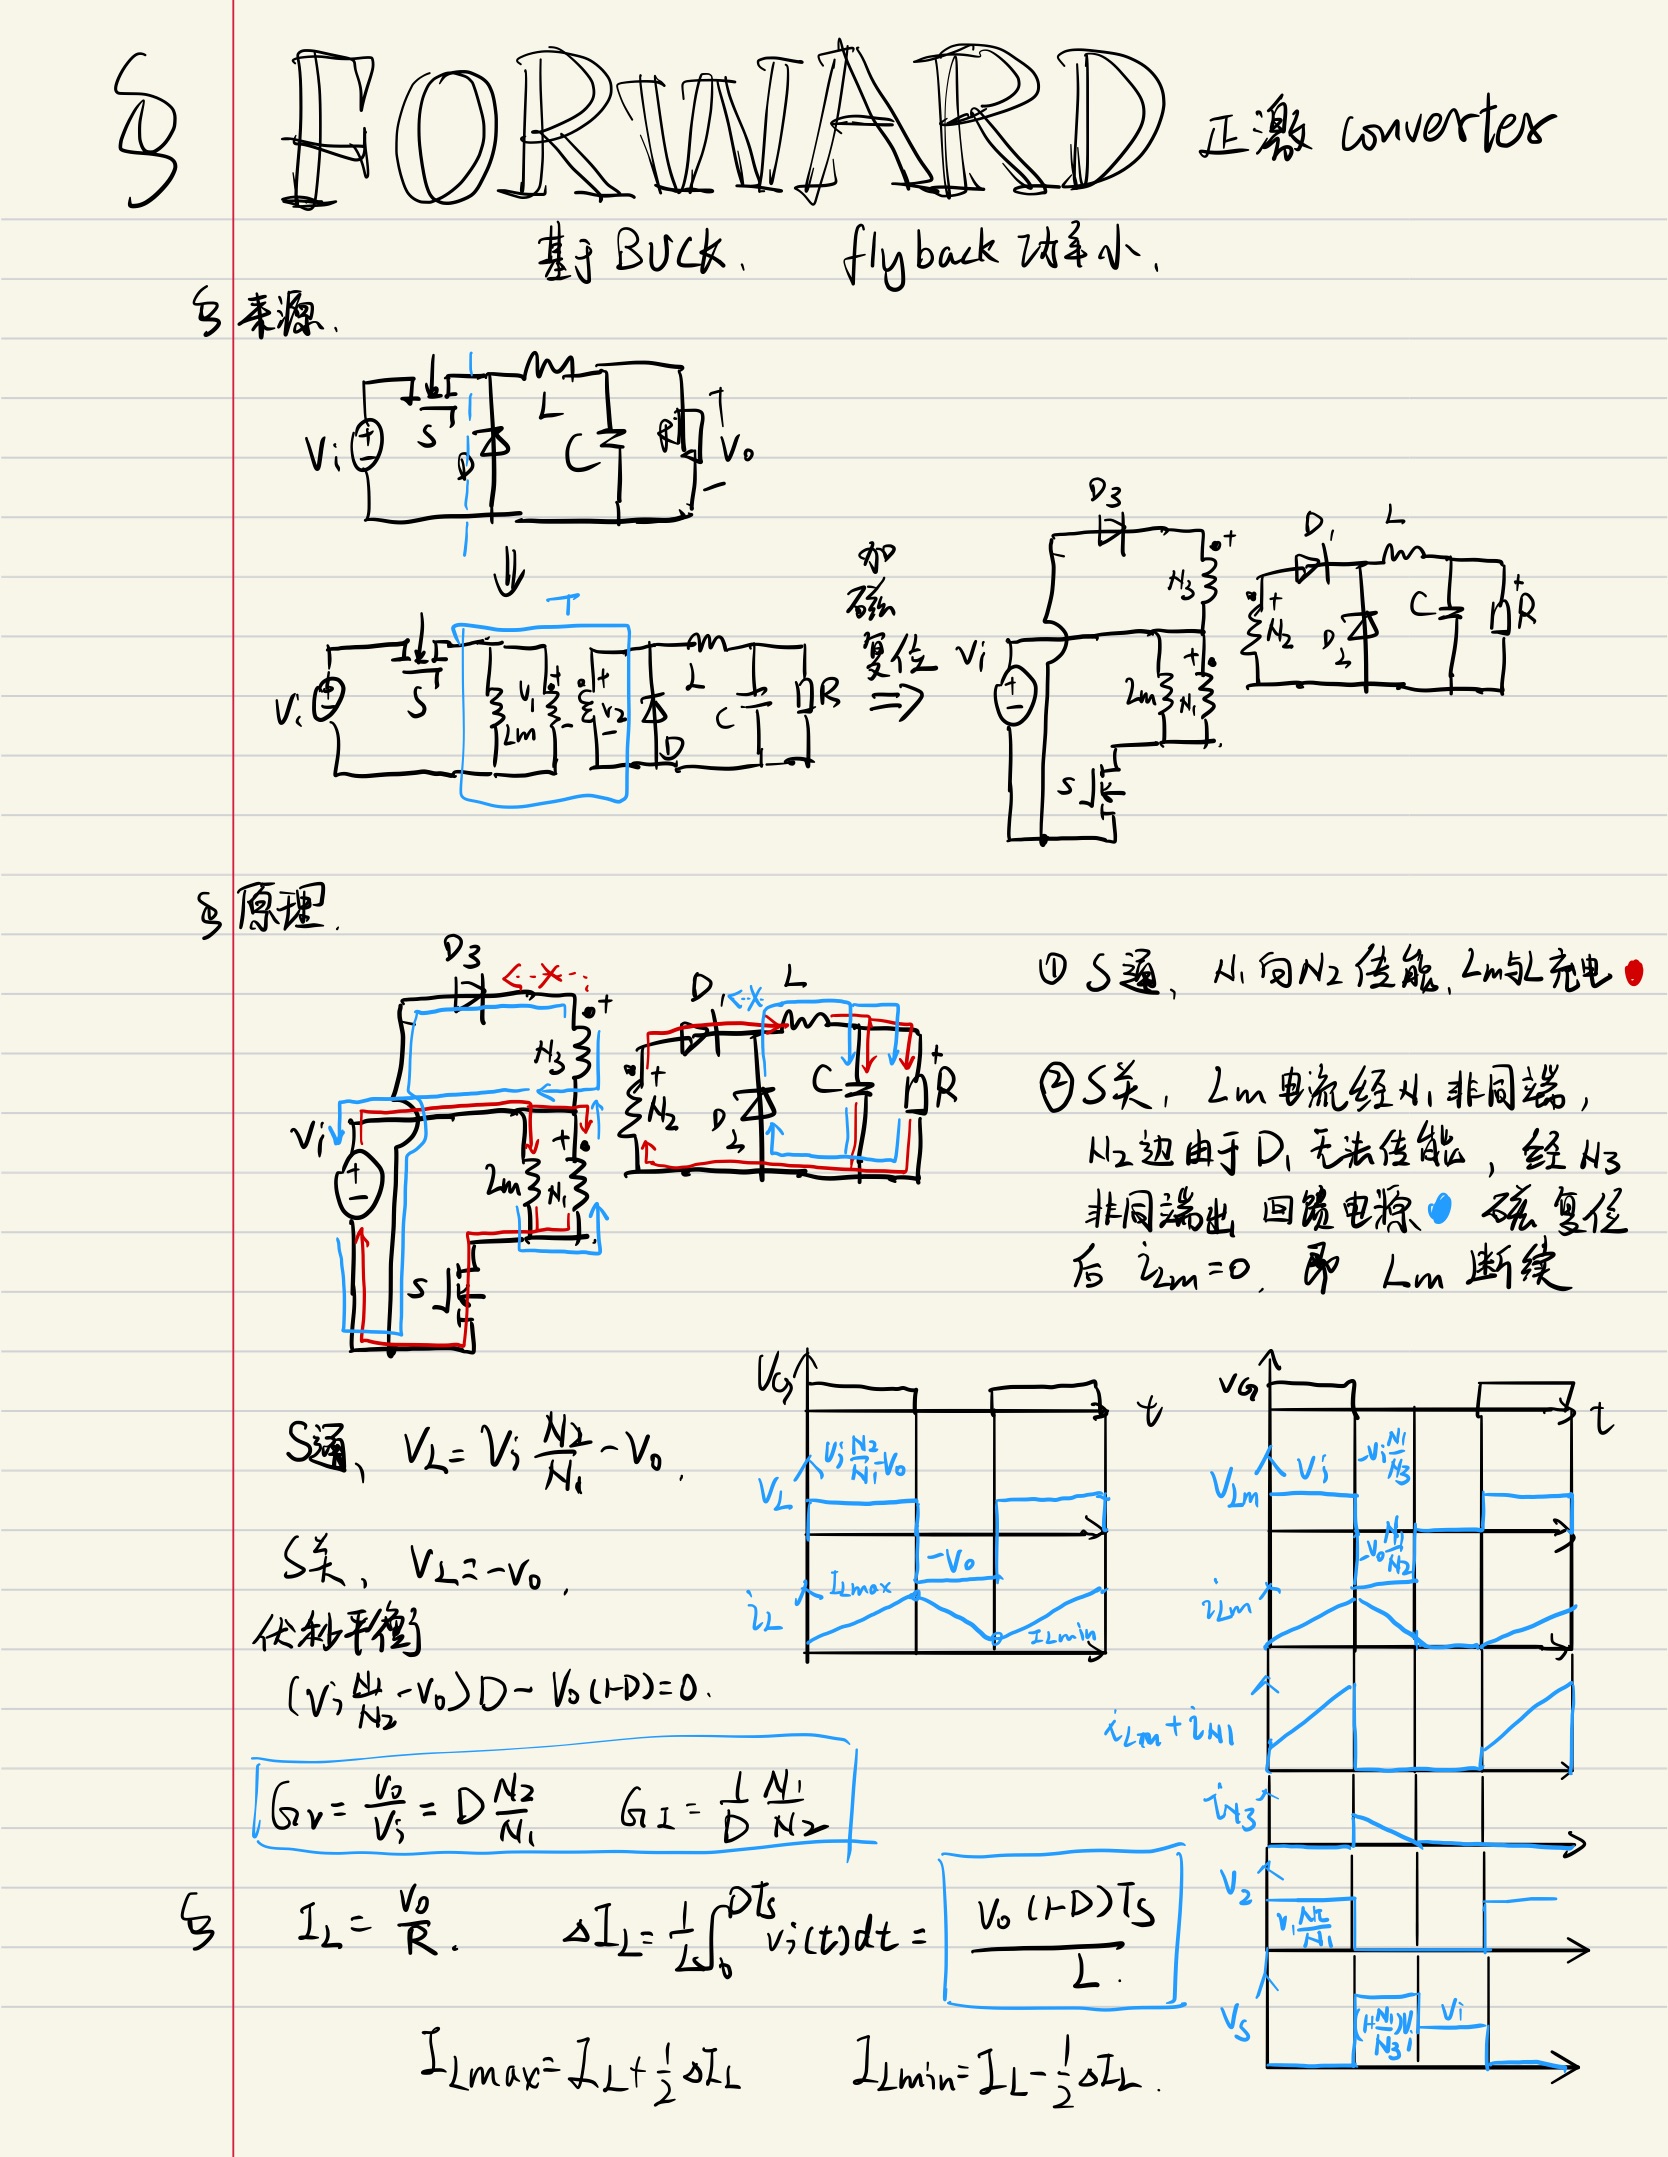 § FORWARD 正激 converter
基于BUCK. flyback 功率小.
§ 来源.
Vi S D L C R + Vo -
⇓
T
Vi S Lm V1 + - + V2 - D L C R
加磁复位 ⇒
D3 + N3 Vi Lm N1 + S
+ N2 D1 L D2 C + R
§ 原理.
D3 + N3 Vi Lm N1 + S
+ N2 D1 L D2 C + R
① S通、N1向N2传能、Lm与L充电
② S关, Lm电流经N1非同端,
N2边由于D1无法传能, 经N3
非同端出 回馈电源 磁复位
后 iLm=0. 即 Lm 断续
S通、 VL = Vi N2/N1 - Vo.
S关、 VL = -Vo.
伏秒平衡
(Vi N1/N2 - Vo)D - Vo(1-D)=0.
Gv = Vo/Vi = D N2/N1 GI = 1/D N1/N2
VG t
VL Vi N2/N1 - Vo
-Vo
iL ILmax ILmin
VG t
VLm Vi -Vi N1/N3
-Vo N1/N2
iLm
iLm+iN1
iN3
V2 Vi N2/N1
Vs (1+N1/N3)Vi Vi
§ IL = Vo/R. ΔIL = 1/L ∫0 DTs vi(t)dt = Vo(1-D)Ts/L.
ILmax = IL + 1/2 ΔIL ILmin = IL - 1/2 ΔIL.